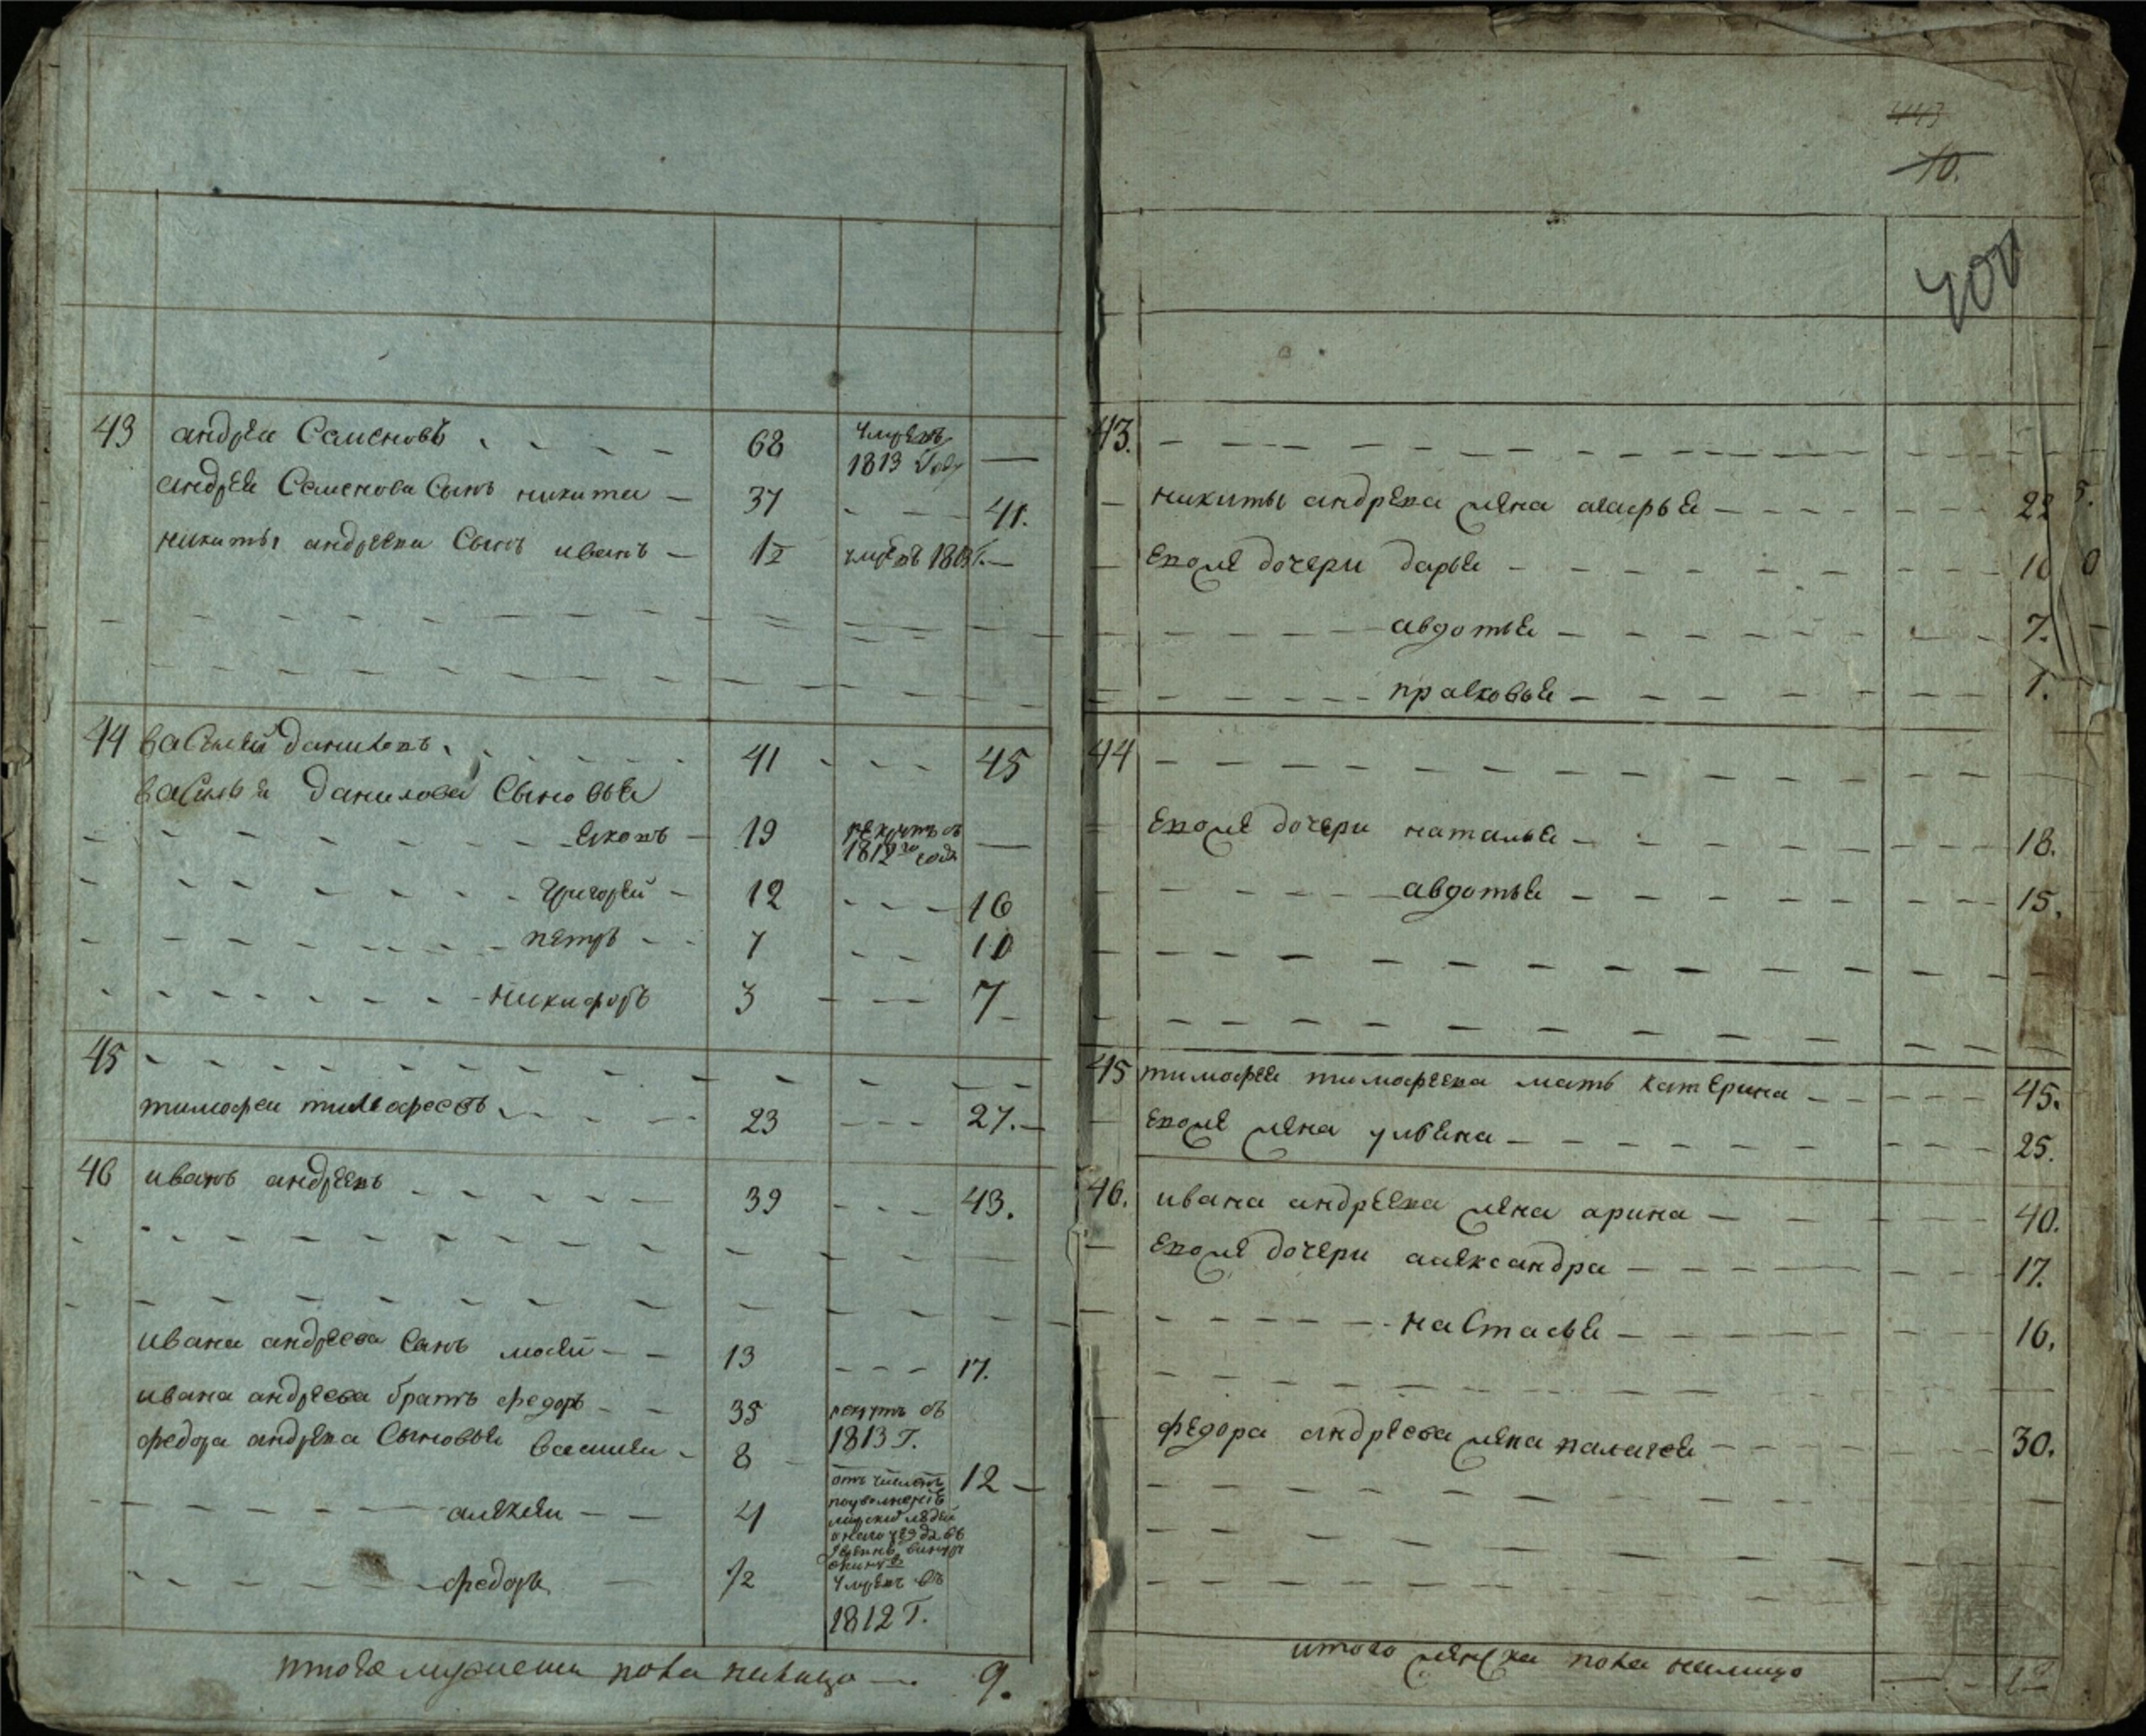 43 андреи Семеновъ 68 умре въ
1813 Году
андрея Семенова Сынъ никита 37 41.
никиты андреева Сынъ иванъ 12 умре въ 1813 Г.
44 василей данилевъ 41 45
василья данилова Сыновья
яковъ 19 рекрутъ въ
1812го годе
григорей 12 16
петръ 7 10
никифоръ 3 7
45
тимофеи тимофеевъ 23 27.
46 иванъ андреевъ 39 43.
ивана андреева Сынъ мосей 13 17.
ивана андреева братъ федоръ 35 рекрутъ въ
1813 Г.
федора андреева Сыновья василеи 8 12
алексеи 4
федоръ 1/2 умре въ
1812 Г.
итого мужеска пола налицо 9.
443
10.
400
43.
никиты андреева жена марья 22
5.
его же дочери дарья 10
0
авдотья 7.
прасковья 1.
44
его же дочери наталья 18.
авдотья 15.
45 тимофея тимофеева мать катерина 45.
его же жена ульяна 25.
46. ивана андреева жена арина 40.
его же дочери александра 17.
настасья 16.
федора андреева жена палагея 30.
итого женска пола налицо 12